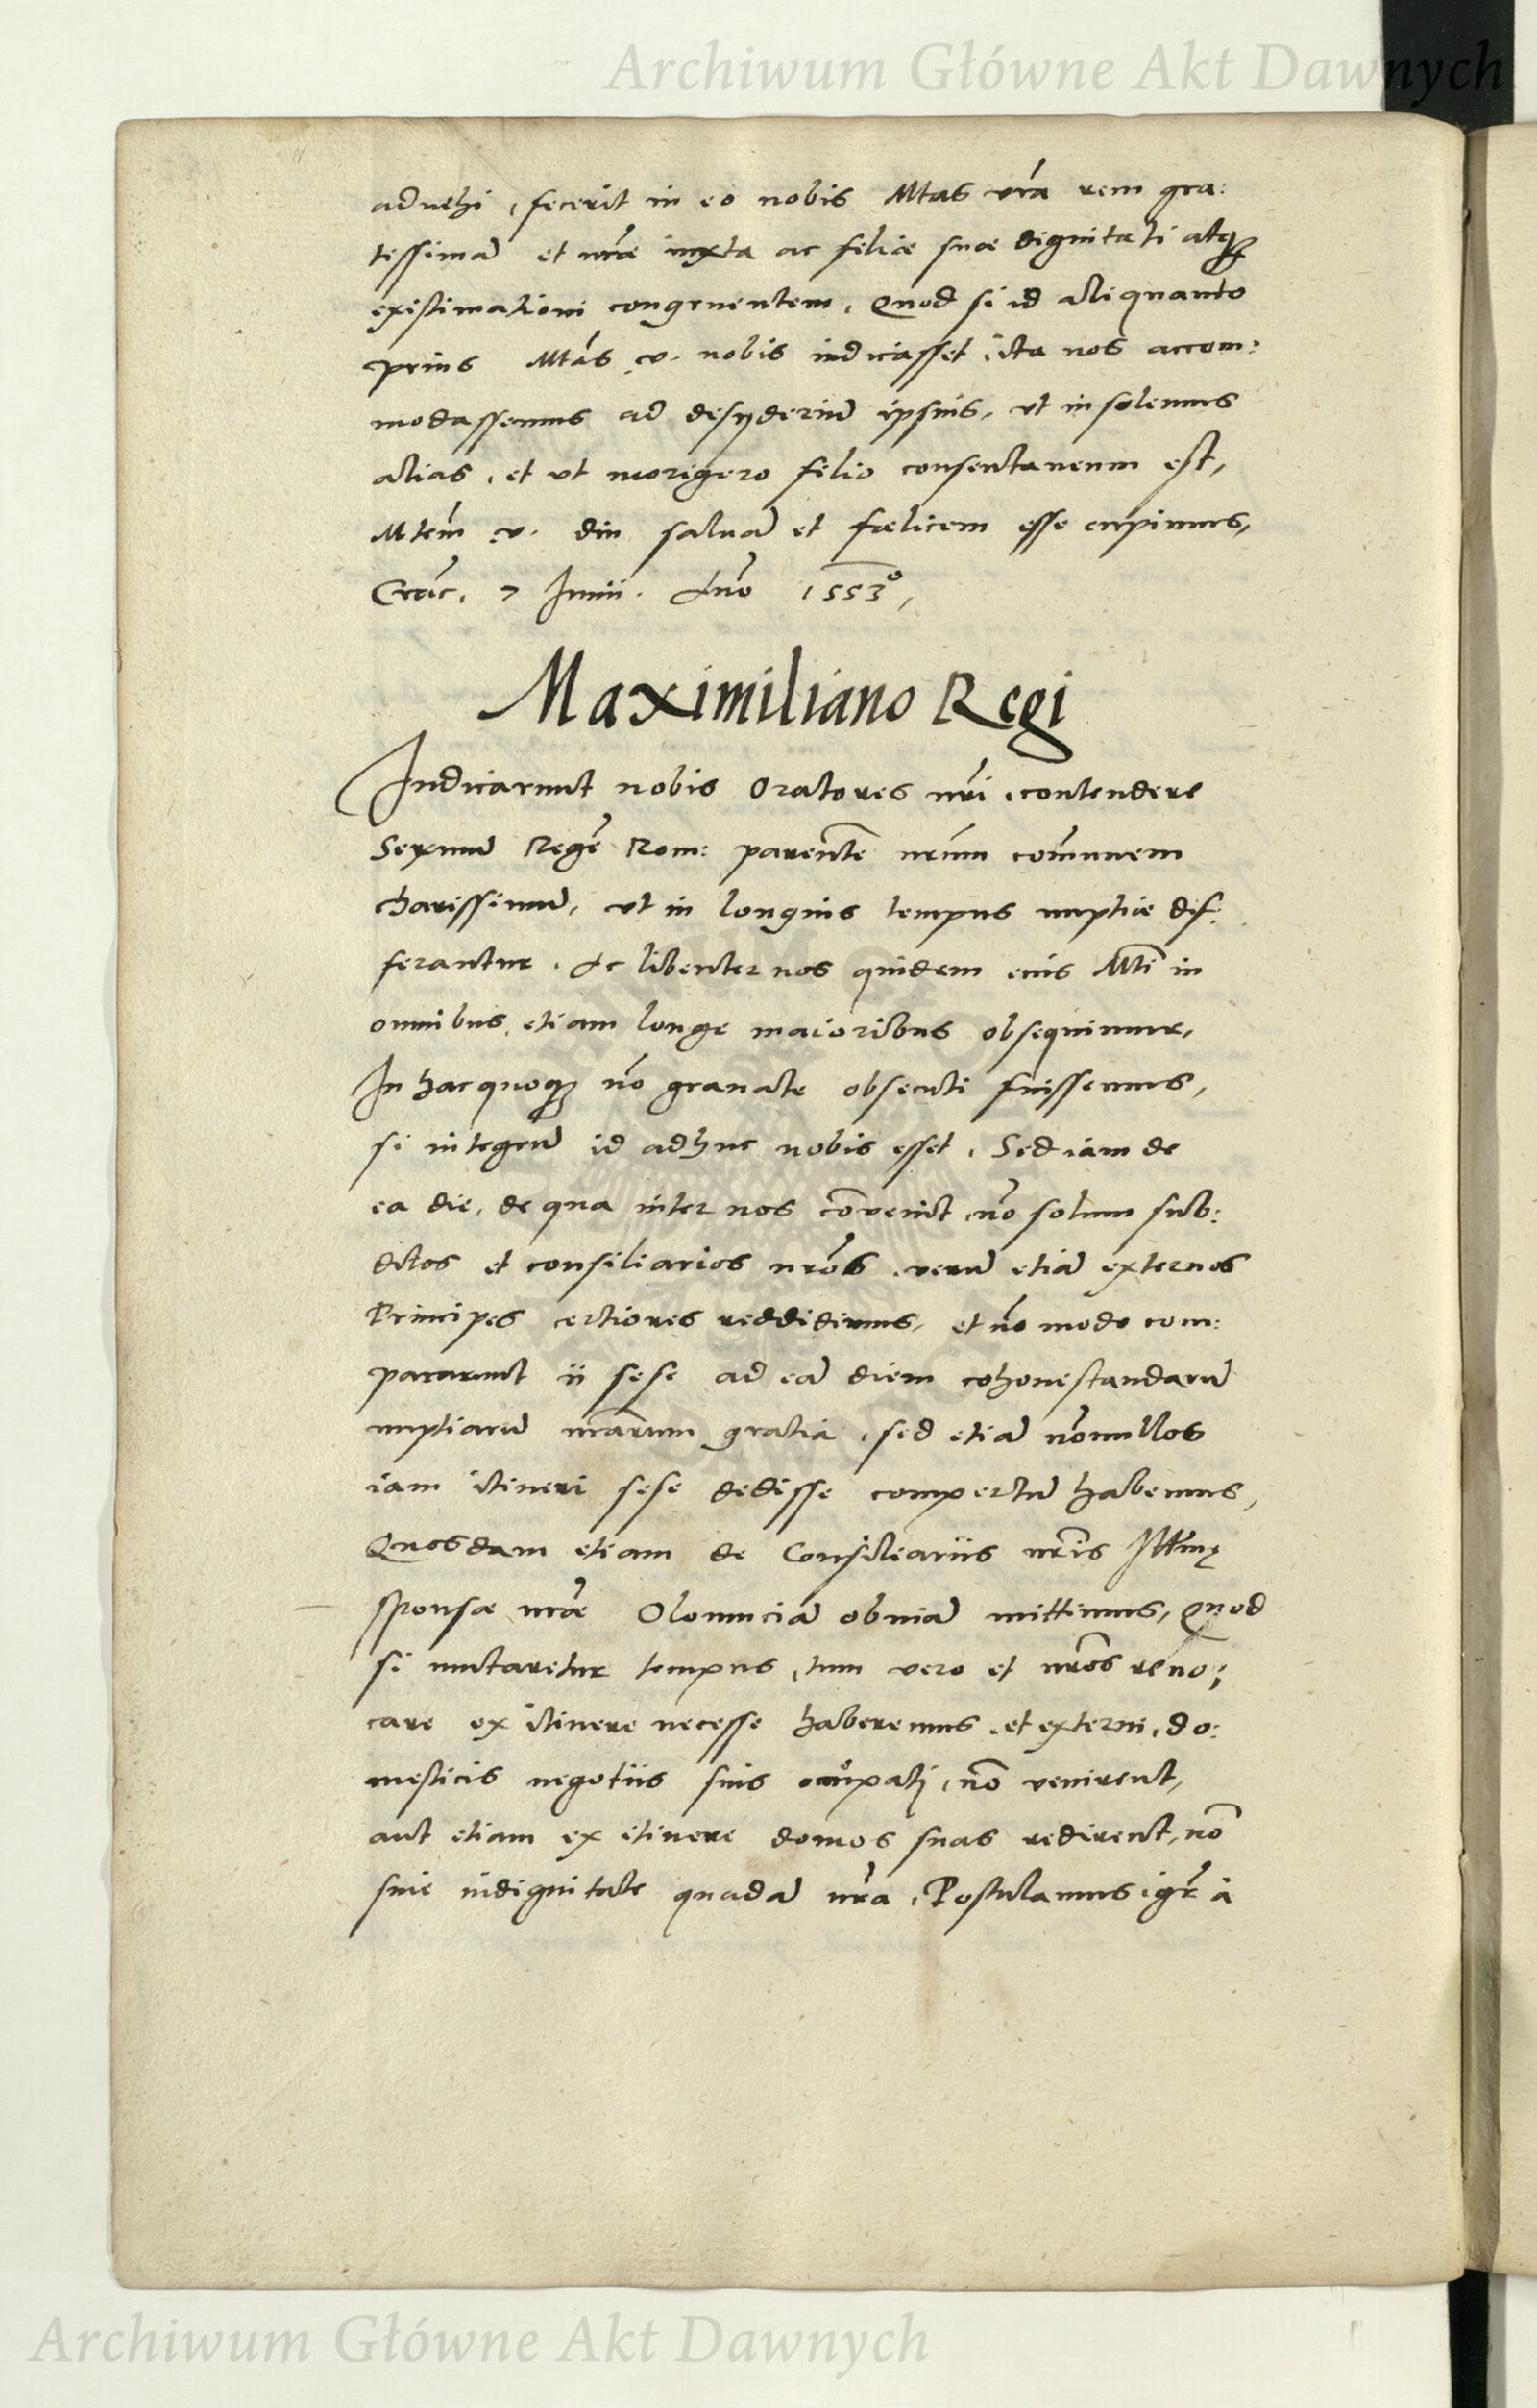 Archiwum Główne Akt Dawnych
aduehi, fecerit in eo nobis Mtas vra rem gra:
tissimā et nrae iuxta ac filiae suae dignitati atq3
existimationi congruentem. Quod si id aliquanto
prius Mtas v. nobis indicasset, ita nos accom:
modassemus ad desyderiū ipsius, ut in solemus
alias, et ut morigero filio consentaneum est,
Mtem v. diu saluā et foelicem esse cupimus,
Crac. 7 Junii. Ano 1553o,
Maximiliano Regi
Indicarunt nobis Oratores nri, contendere
Sermū Regē Rom: parentē nrum comunem
charissimū, ut in longius tempus nuptiae dif:
ferantur. Ac libenter nos quidem eius Mti in
omnibus, etiam longe maioribus obsequimur,
In hac quoq3 nō grauate obsecuti fuissemus,
si integrū id adhuc nobis esset. Sed iam de
ea die, de qua inter nos cōvenit, nō solum sub:
ditos et consiliarios nros, verū etiā externos
Principes certiores reddidimus, et nō modo com:
pararunt ii sese ad eā diem cohonestandarū
nuptiarū nrarum gratia, sed etiā nōnullos
iam itineri sese dedisse compertū habemus,
Quosdam etiam de Consiliariis nris Illmę
sponsae nrae Olomuciā obuiā mittimus, Quod
si mutaretur tempus, tum vero et nros reuo:
care ex itinere necesse haberemus, et externi, do:
mesticis negotiis suis occupati, nō venirent,
aut etiam ex itinere domos suas redirent, nō
sine indignitate quadā nra. Postulamus igr a
Archiwum Główne Akt Dawnych